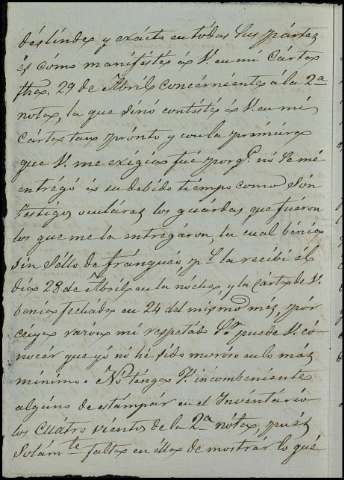 deslindes y exacta en todas sus pártes
és cómo manifésté á V. en mi Cárta
fha. 29 de Abril concérniente á la 2ª
nota, la que sinó contésté á V. en mi
Cárta tan prónto y con la primúra
que V. me exegia fué porq.e nó se mé
entrégó á su debido tiempo como són
testigos oculáres los guárdas que fuéron
los que me la entregáron, la cual benia
sin séllo de fránqueo, y la recibí él
dia 28 de Abril en la nóche, y la cárta de V.
benia fechada en 24 del mismo més, pór
cuya razon mi respetado S.or puede V. có-
nocer que yó nó hé sido moroso en lo mas
mínimo = Nó tenga V. incombeniente
alguno de estámpár en el Inventário
los cuatro vientos de la 2ª nóta, pués
sólam.te falta en élla de mostrár lo qué